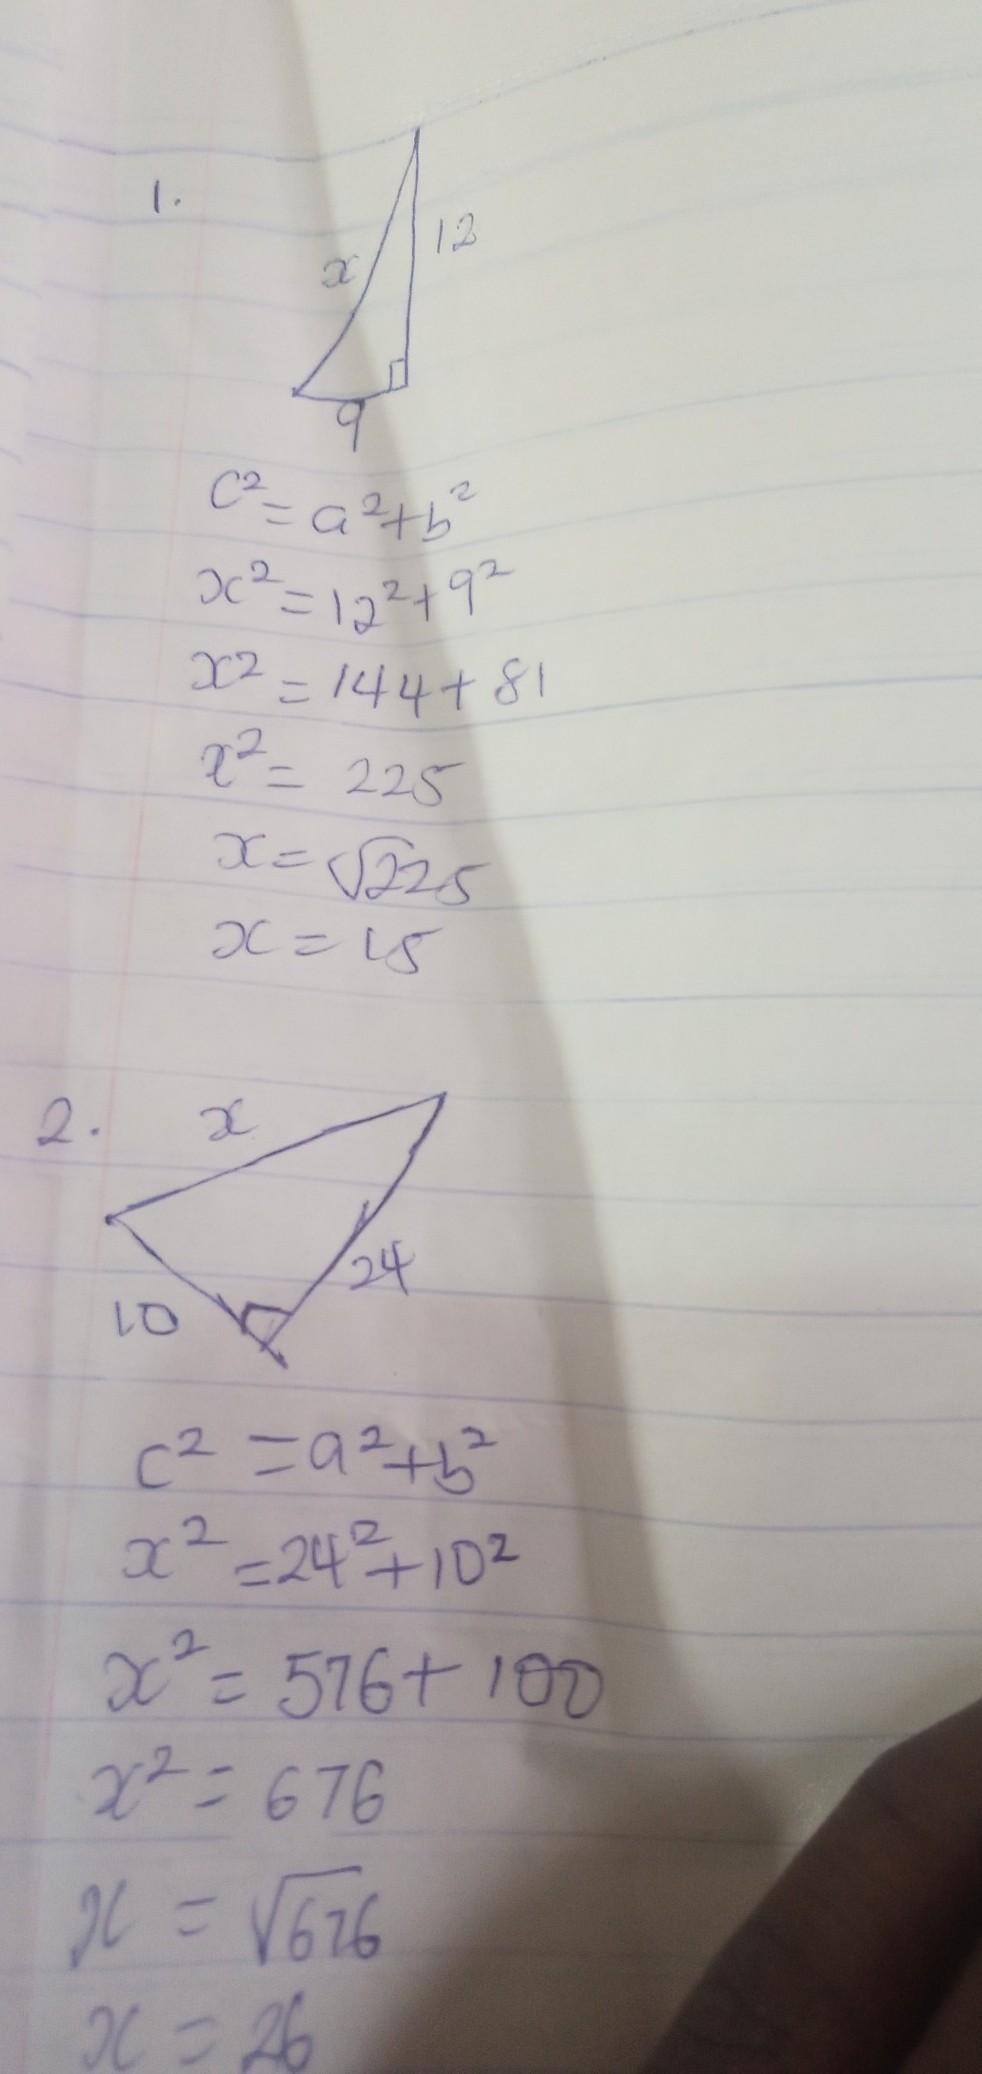 1.
x
12
9
c² = a² + b²
x² = 12² + 9²
x² = 144 + 81
x² = 225
x = √225
x = 15
2.
x
24
10
c² = a² + b²
x² = 24² + 10²
x² = 576 + 100
x² = 676
x = √676
x = 26